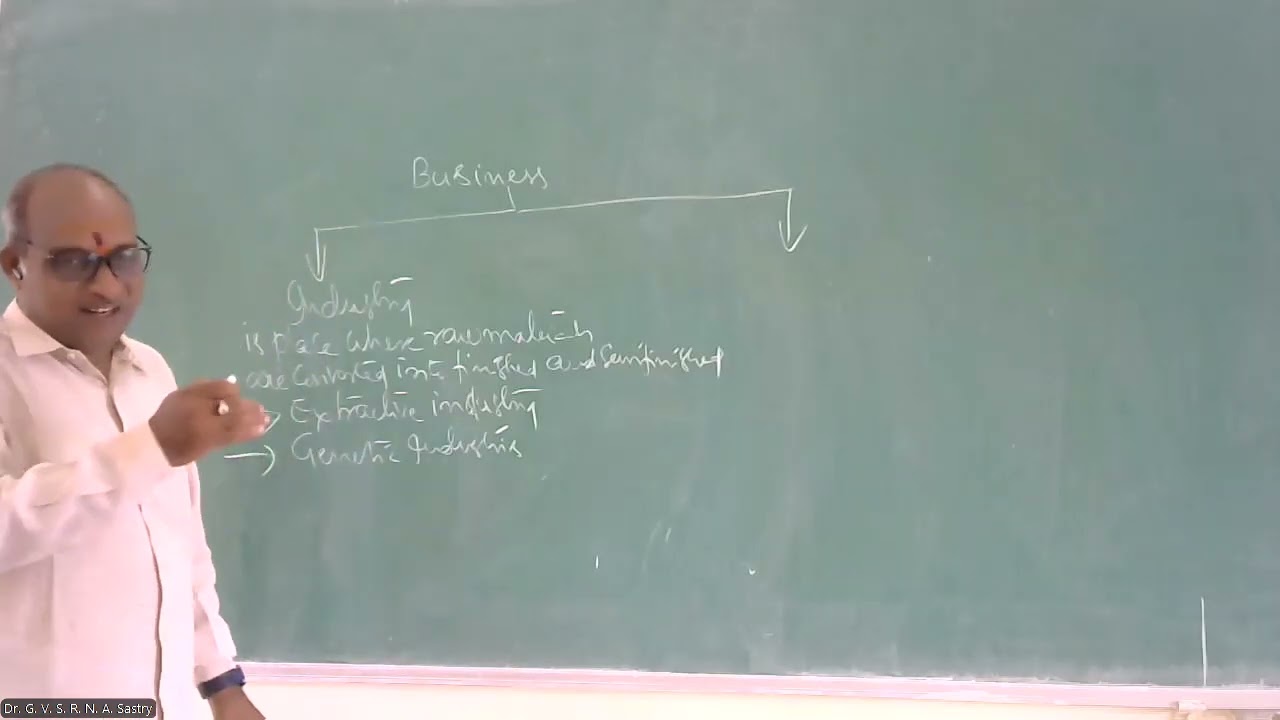 Business
Industry
is place where raw materials
are Converted into finished and Semifinished
→ Extractive industry
→ Genetic Industries
Dr. G. V. S. R. N. A. Sastry